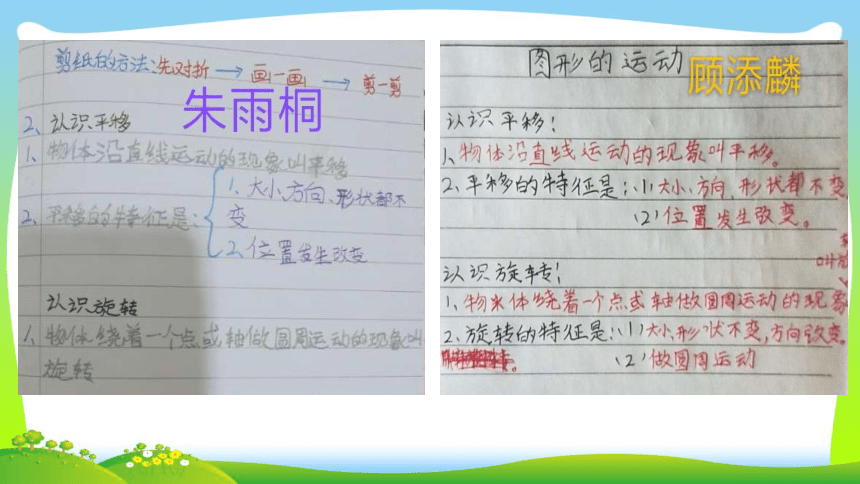 剪纸的方法:先对折→画一画→剪一剪
朱雨桐
2、认识平移
1、物体沿直线运动的现象叫平移
2、平移的特征是:
1、大小、方向、形状都不
变
2、位置发生改变
认识旋转
1、物体绕着一个点或轴做圆周运动的现象叫
旋转
图形的运动
顾添麟
认识平移:
1、物体沿直线运动的现象叫平移。
2、平移的特征是:(1)大小、方向、形状都不变
(2)位置发生改变。
认识旋转:
1、物体绕着一个点或轴做圆周运动的现象
2、旋转的特征是:(1)大小、形状不变,方向改变。
(2)做圆周运动